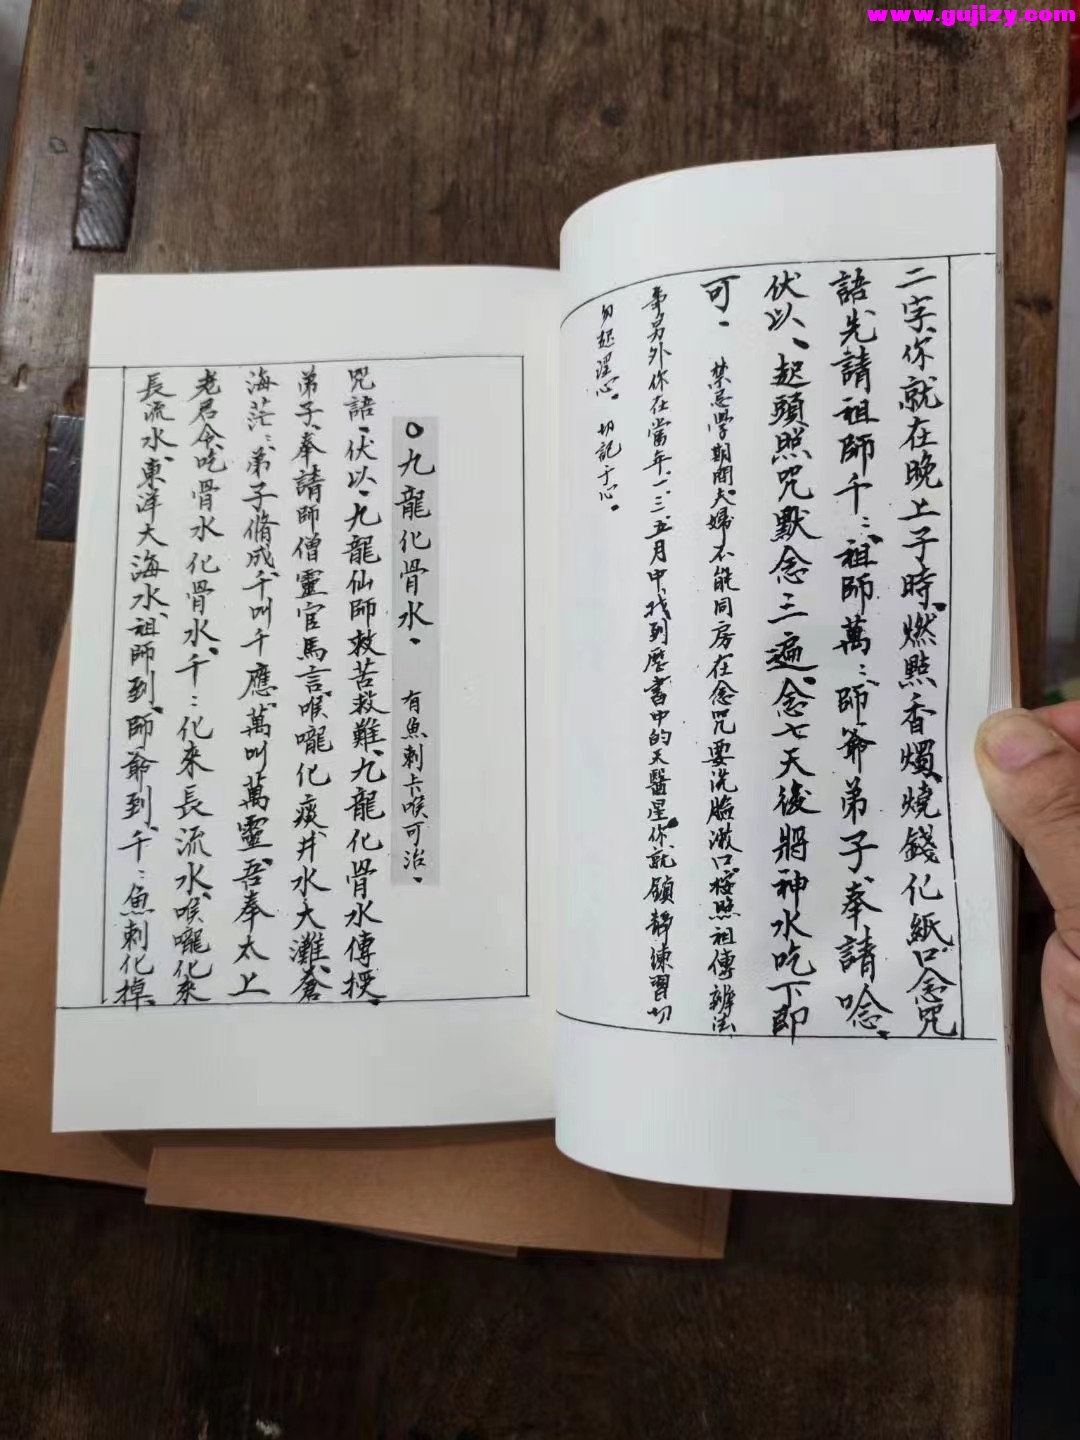 www.gujizy.com
二字、你就在晚上子時、燃點香燭、燒錢化紙、口念咒
語、先請祖師千〻、祖師萬〻、師爺弟子、奉請唸、
伏以、起頭照咒默念三遍、念七天後將神水吃下即
可。禁忌學期間夫婦不能同房在念咒要洗臉漱口、按照祖傳辦法、
另外你在當年一、三、五月中、找到歷書中的天醫星、你就鎮靜練習切
勿起淫心。切記于心。
〇九龍化骨水。有魚刺卡喉可治。
咒語、伏以、九龍仙師救苦救難、九龍化骨水傳授、
弟子、奉請師僧靈官馬言、喉嚨化痰、井水大灘、蒼
海茫〻、弟子脩成、千叫千應、萬叫萬靈、吾奉太上
老君令、吃骨水化骨水、千〻化來長流水、喉嚨化來
長流水、東洋大海水、祖師到、師爺到、千〻魚刺化掉、